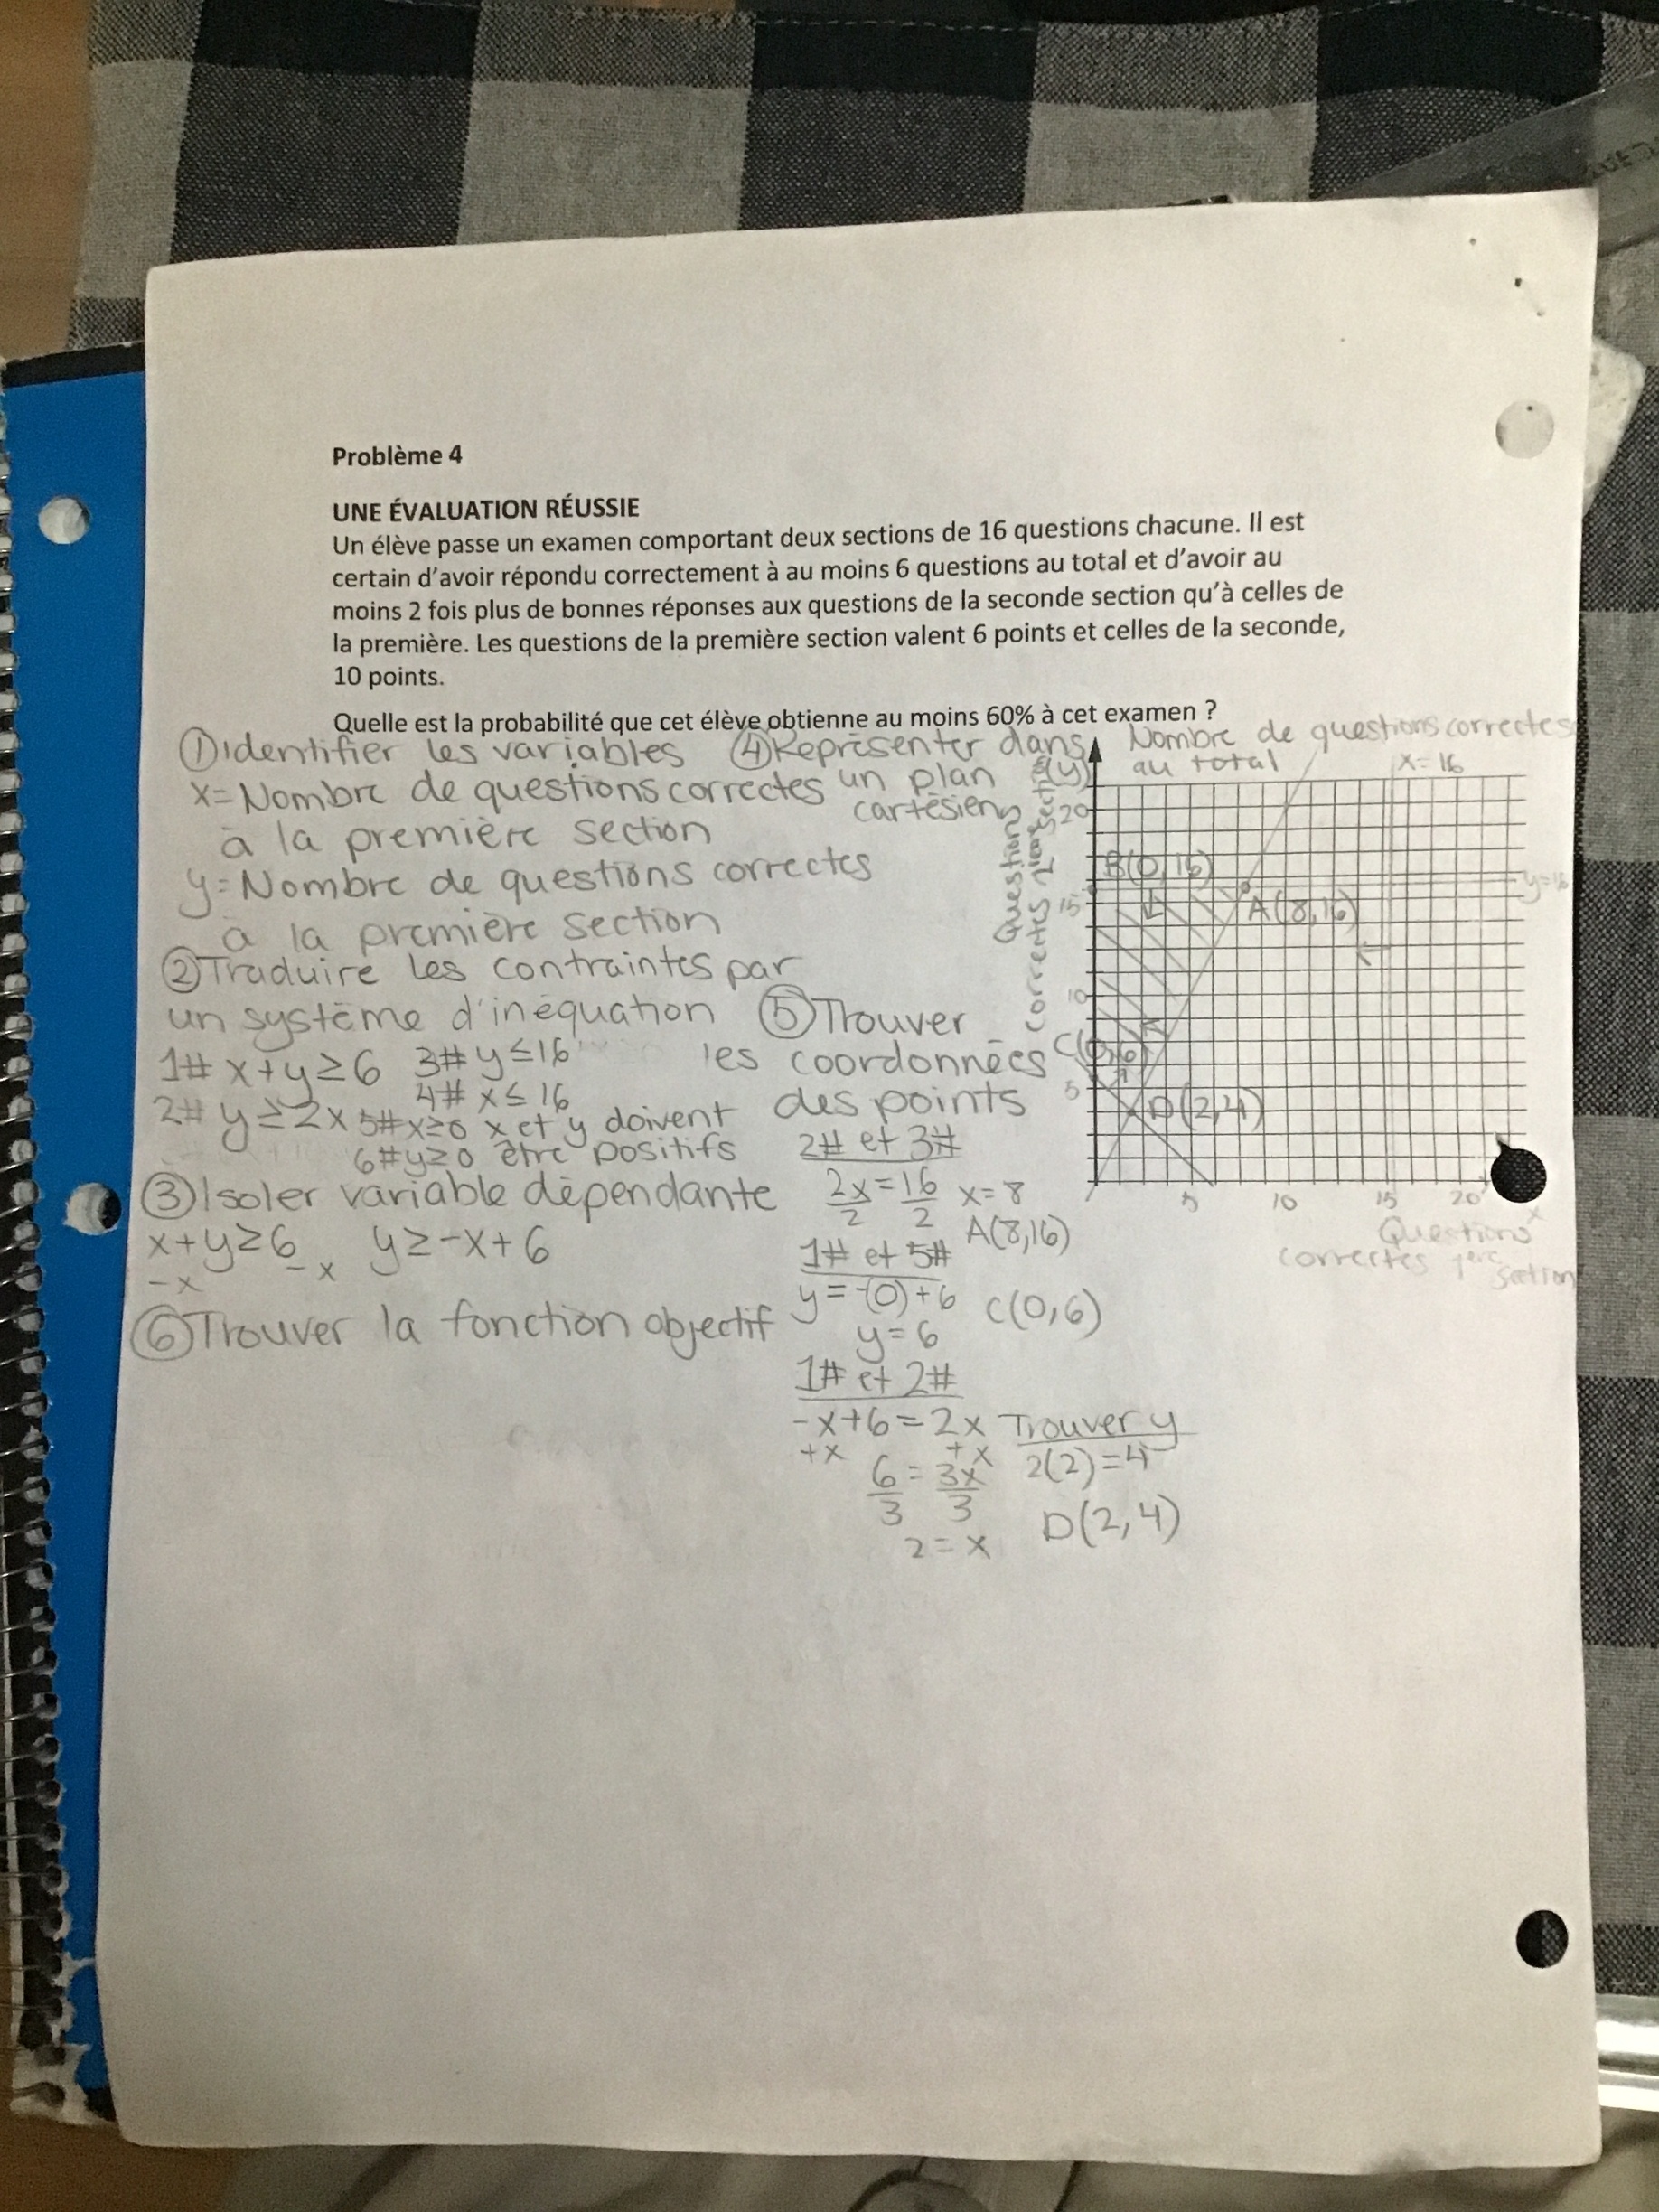 Problème 4
UNE ÉVALUATION RÉUSSIE
Un élève passe un examen comportant deux sections de 16 questions chacune. Il est
certain d'avoir répondu correctement à au moins 6 questions au total et d'avoir au
moins 2 fois plus de bonnes réponses aux questions de la seconde section qu'à celles de
la première. Les questions de la première section valent 6 points et celles de la seconde,
10 points.
Quelle est la probabilité que cet élève obtienne au moins 60% à cet examen ?
① Identifier les variables
x = Nombre de questions correctes
à la première section
y = Nombre de questions correctes
à la première section
② Traduire les contraintes par
un système d'inéquation
1# x+y≥6 3# y≤16
4# x≤16
2# y≥2x 5# x≥0 x et y doivent
6# y≥0 être positifs
③ Isoler variable dépendante
x+y≥6 y≥-x+6
-x -x
⑥ Trouver la fonction objectif
④ Représenter dans
un plan
cartésien
Nombre de questions correctes
au total
x=16
(y)
20
Questions
correctes 2ième section
B(0,16)
y=16
15
A(8,16)
10
C(0,6)
5
D(2,4)
5 10 15 20 x
Questions
correctes 1ère
section
⑤ Trouver
les coordonnées
des points
2# et 3#
2x = 16 x=8
2 2
A(8,16)
1# et 5#
y = -(0)+6 C(0,6)
y = 6
1# et 2#
-x+6 = 2x Trouver y
+x +x 2(2)=4
6 = 3x
3 3
D(2,4)
2 = x